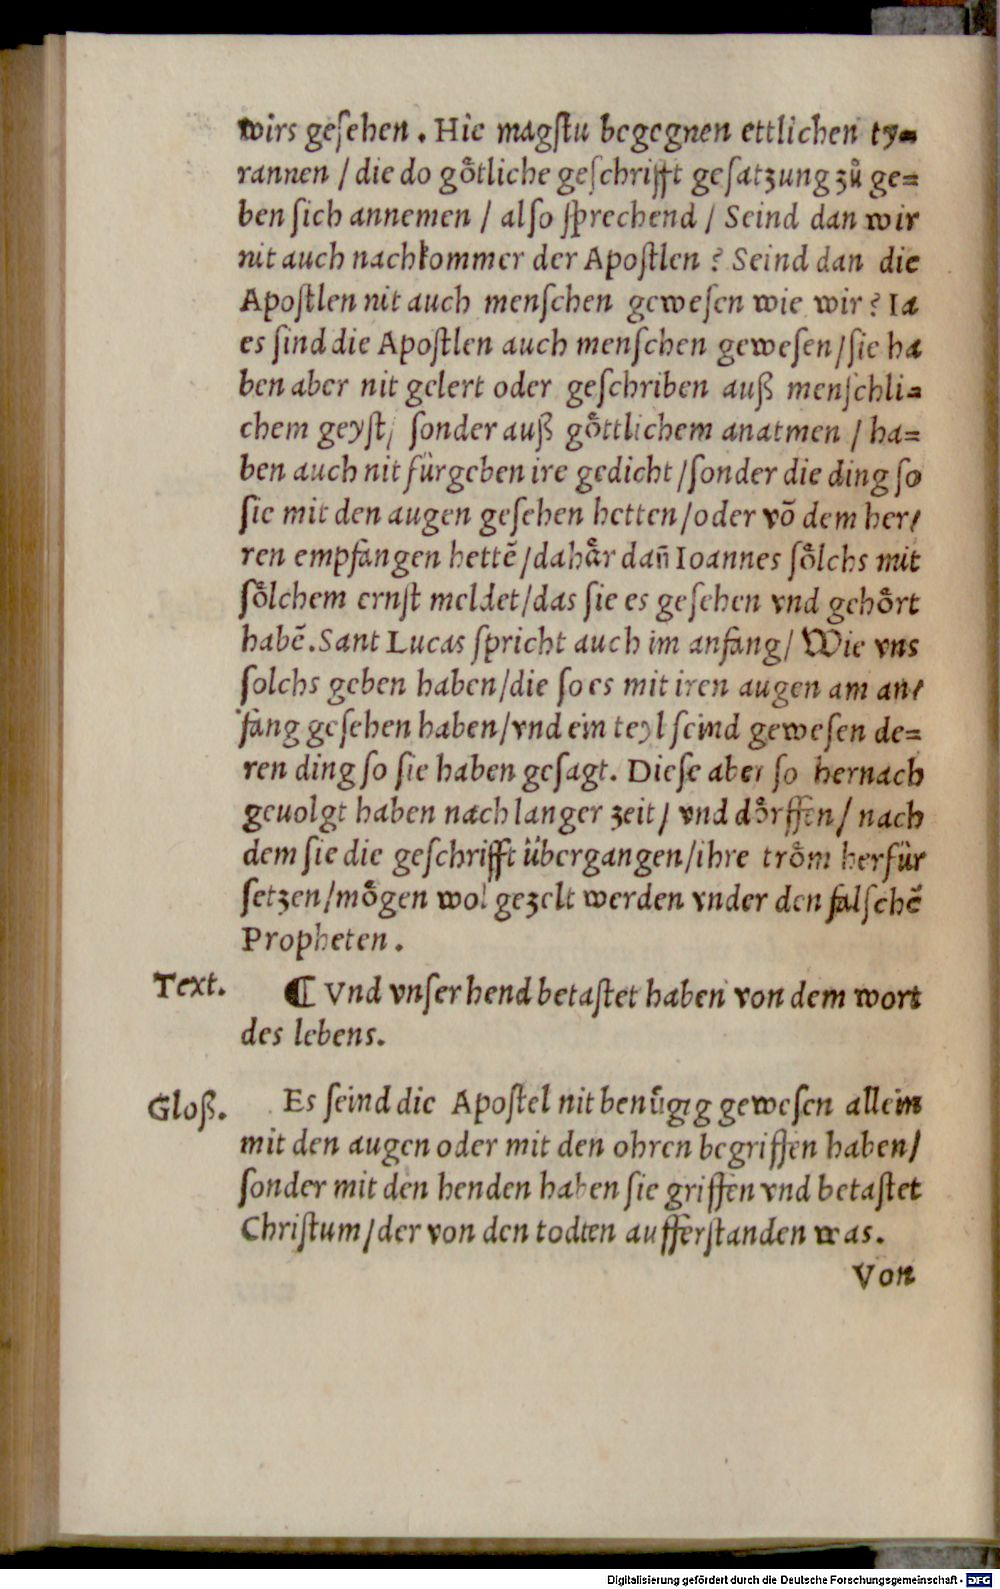 wirs geſehen. Hie magſtu begegnen ettlichen ty⸗
rannen / die do goͤtliche geſchrifft geſatzung zů ge⸗
ben ſich annemen / alſo ſprechend / Seind dan wir
nit auch nachkommer der Apoſtlen? Seind dan die
Apoſtlen nit auch menſchen geweſen wie wir? Ia
es ſind die Apoſtlen auch menſchen geweſen / ſie ha
ben aber nit gelert oder geſchriben auß menſchli⸗
chem geyſt / ſonder auß goͤttlichem anatmen / ha⸗
ben auch nit fürgeben ire gedicht / ſonder die ding ſo
ſie mit den augen geſehen hetten / oder võ dem her⸗
ren empfangen hettẽ / dahaͤr dañ Ioannes ſoͤlchs mit
ſoͤlchem ernſt meldet / das ſie es geſehen vnd gehoͤrt
habẽ. Sant Lucas ſpricht auch im anfang / Wie vns
ſolchs geben haben / die ſo es mit iren augen am an⸗
fang geſehen haben / vnd ein teyl ſeind geweſen de⸗
ren ding ſo ſie haben geſagt. Dieſe aber ſo hernach
geuolgt haben nach langer zeit / vnd doͤrffen / nach
dem ſie die geſchrifft übergangen / ihre troͤm herfür
ſetzen / moͤgen wol gezelt werden vnder den falſchẽ
Propheten.
Text. ¶ Vnd vnſer hend betaſtet haben von dem wort
des lebens.
Gloß. Es ſeind die Apoſtel nit benůgig geweſen allein
mit den augen oder mit den ohren begriffen haben /
ſonder mit den henden haben ſie griffen vnd betaſtet
Chriſtum / der von den todten aufferſtanden was.
Von
Digitalisierung gefördert durch die Deutsche Forschungsgemeinschaft - DFG